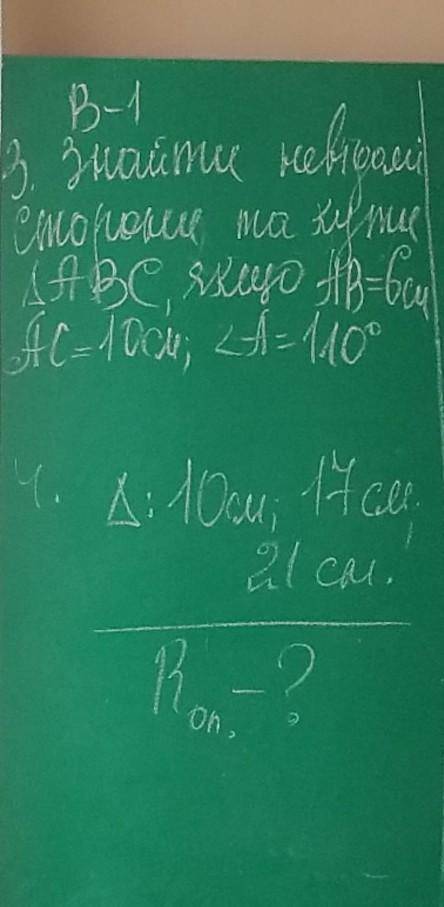 В-1
3. Знайти невідомі
сторони та кути
ΔABC, якщо AB=6см
AC=10см; ∠A=110°
4. Δ: 10см; 17см;
21 см.
Rоп. - ?